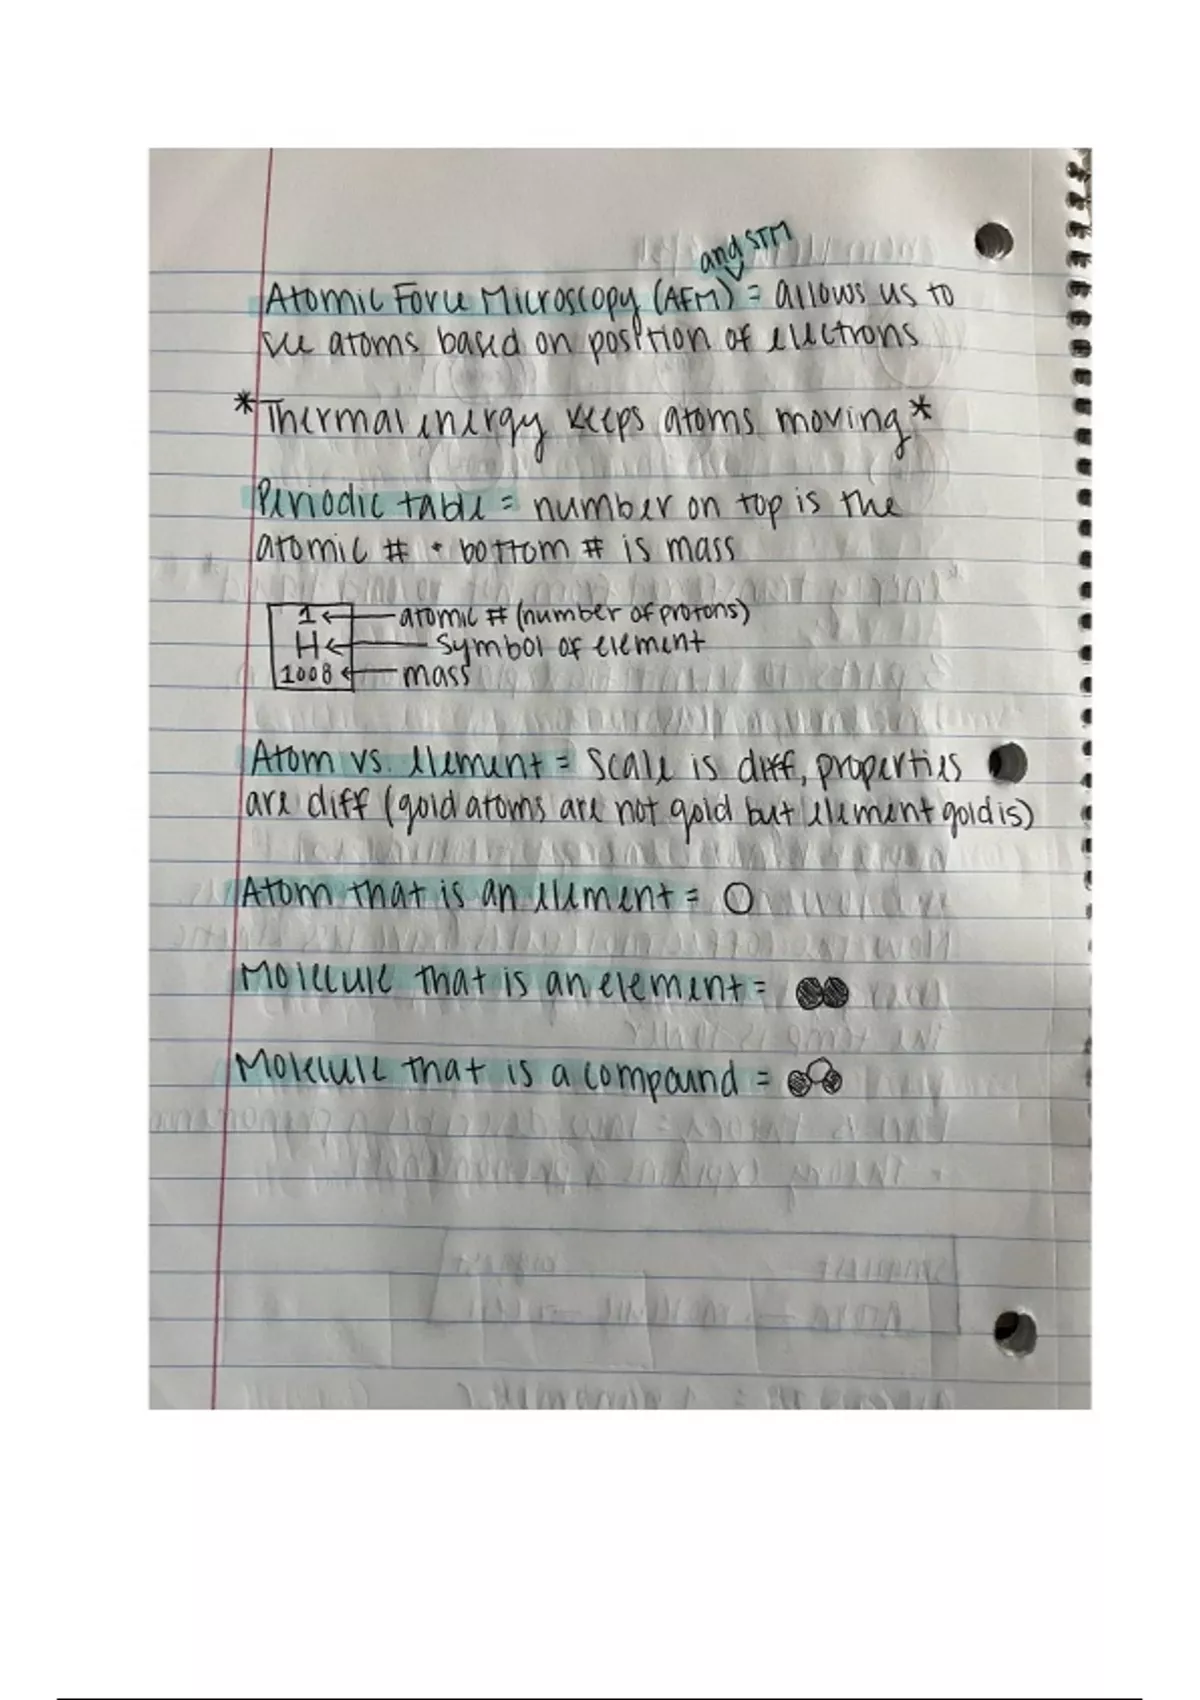 and STM
Atomic Force Microscopy (AFM) = allows us to
see atoms based on position of electrons
*Thermal energy keeps atoms moving*
Periodic table = number on top is the
atomic # + bottom # is mass
1 ← atomic # (number of protons)
H ← Symbol of element
1008 ← mass
Atom vs. element = Scale is diff, properties
are diff (gold atoms are not gold but element gold is)
Atom that is an element =
Molecule that is an element =
Molecule that is a compound =